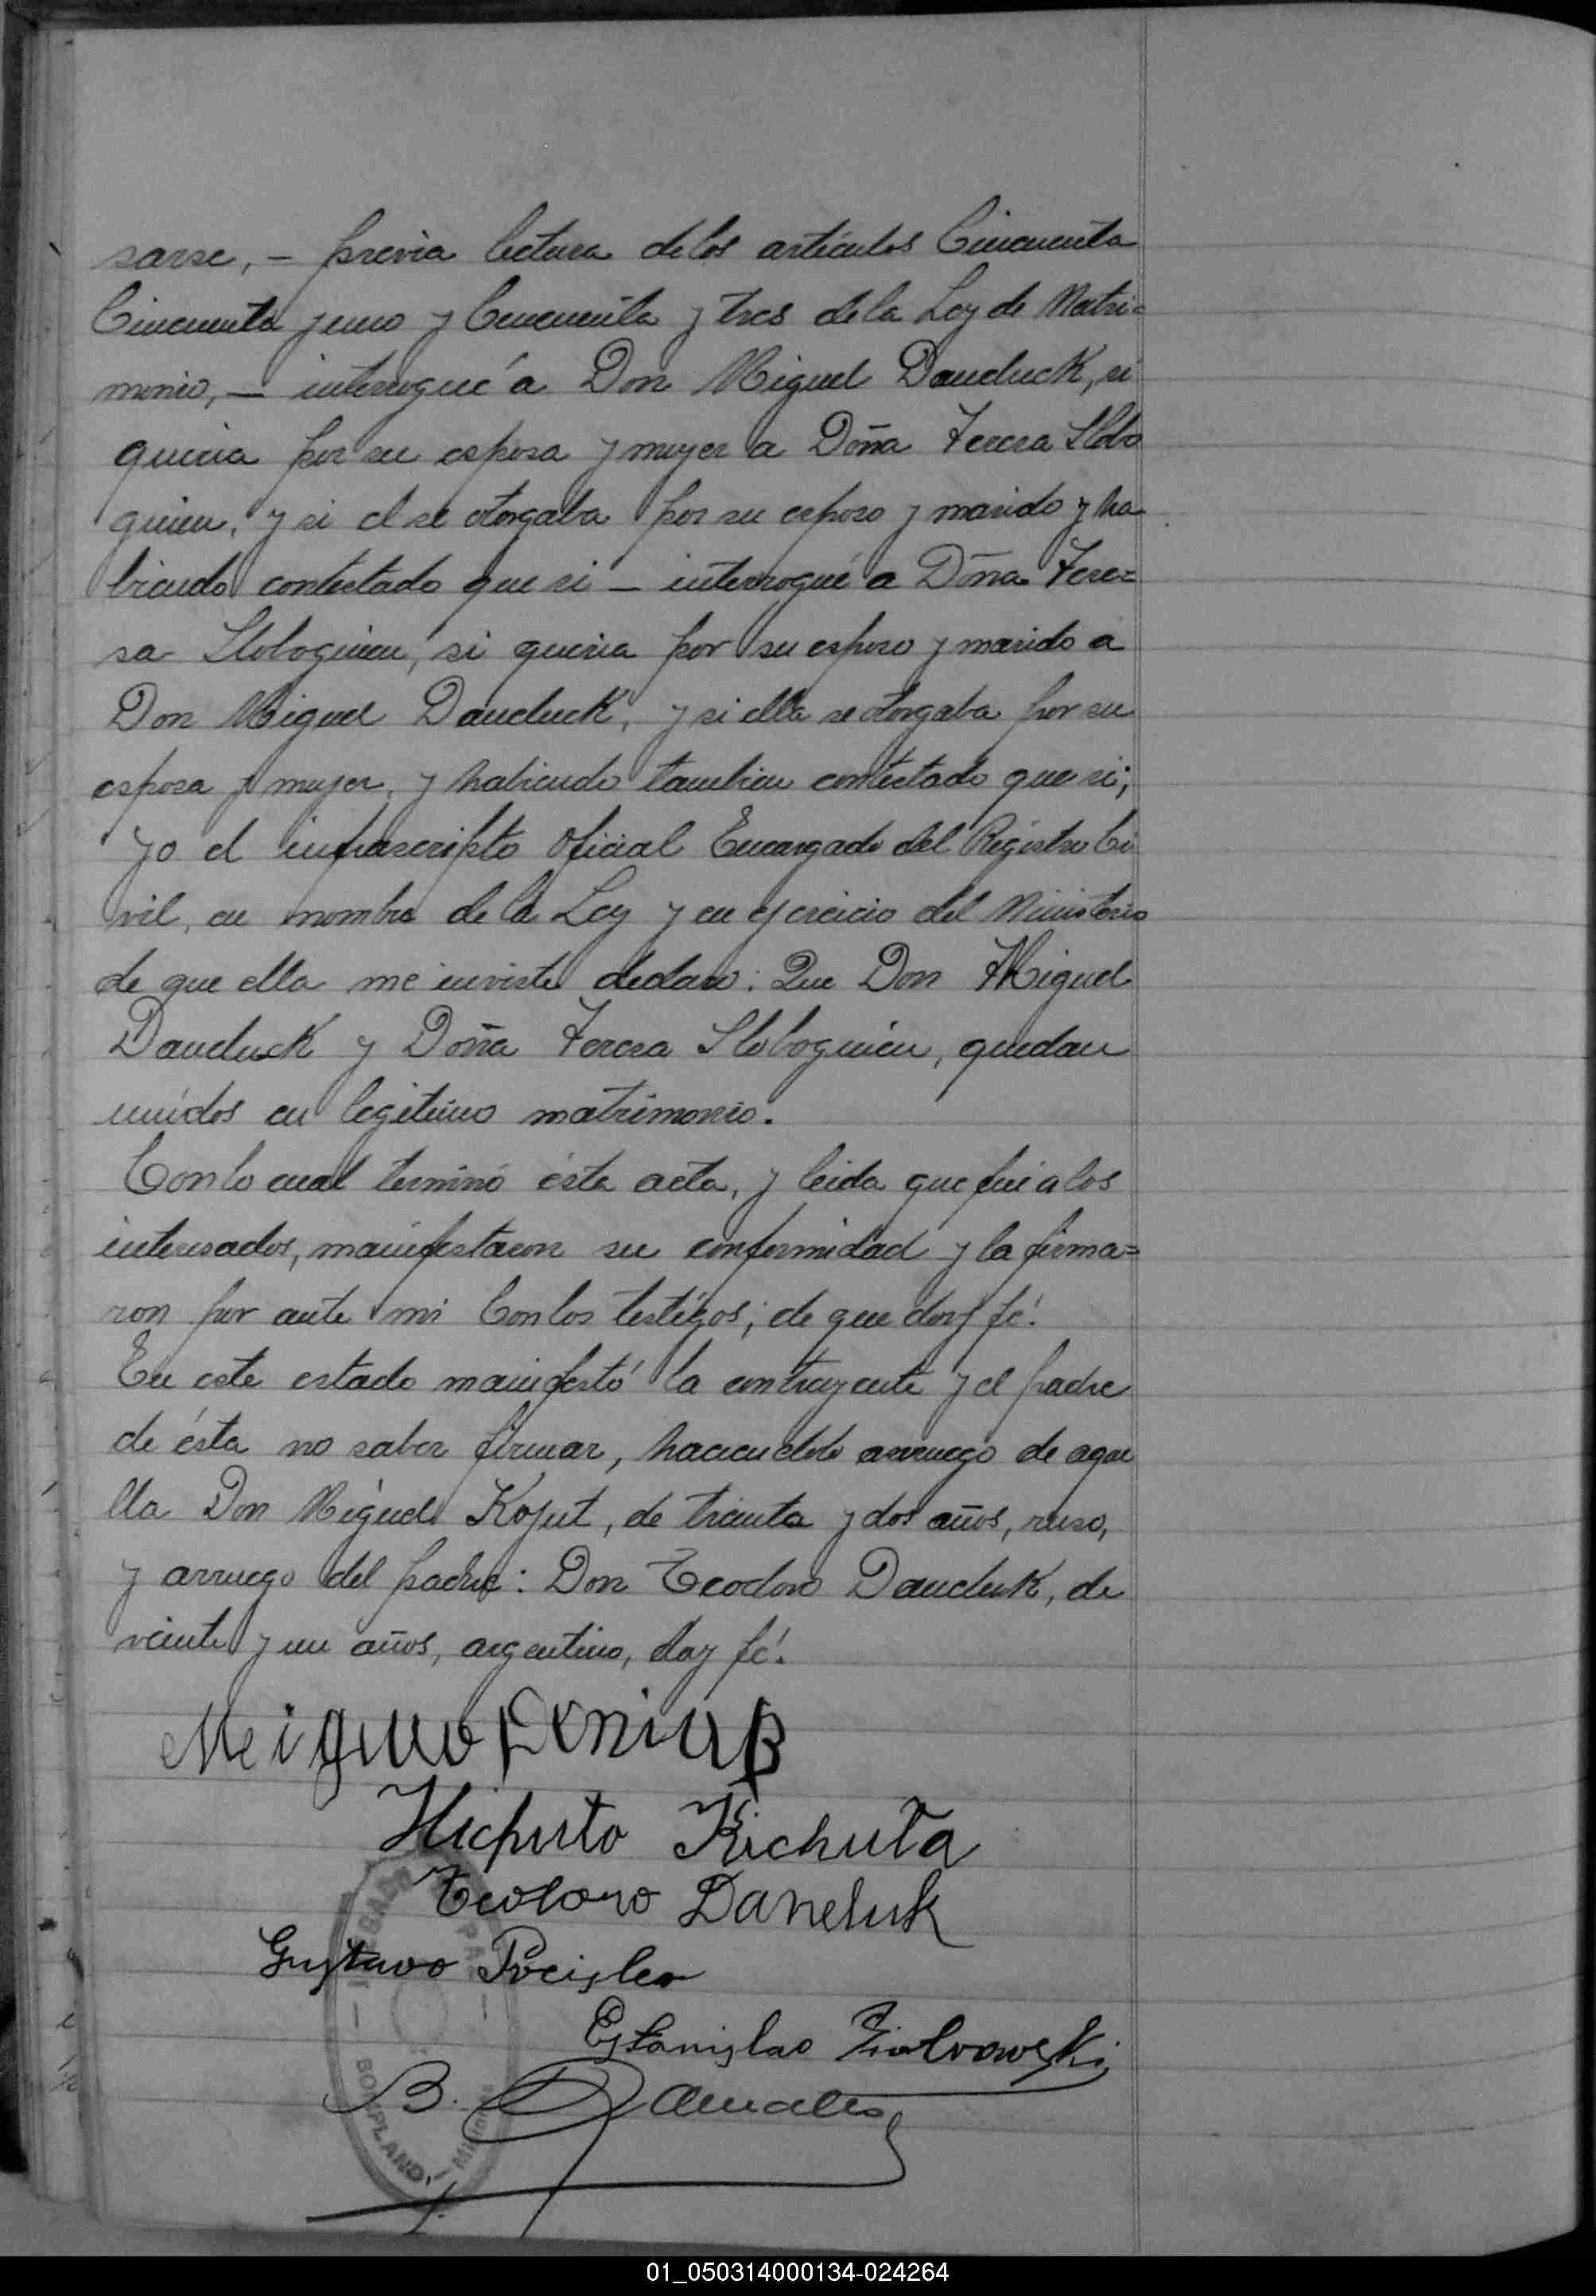 sarse, - previa lectura de los artículos Cincuenta
Cincuenta y uno y Cincuenta y tres de la Ley de Matri=
monio, - interrogué a Don Miguel Daneluck, si
queria por su esposa y mujer a Doña Teresa Slobo
guien, y si el se otorgaba por su esposo y marido y ha
biendo contestado que si - interrogué a Doña Tere=
sa Sloboguien, si queria por su esposo y marido a
Don Miguel Daneluck, y si ella se otorgaba por su
esposa y mujer, y habiendo tambien contestado que si;
yo el infrascripto Oficial Encargado del Registro Ci
vil, en nombre de la Ley y en ejercicio del Ministerio
de que ella me inviste declaro: Que Don Miguel
Daneluck y Doña Teresa Sloboguien, quedan
unidos en legitimo matrimonio.
Con lo cual terminó ésta acta, y leida que fué a los
interesados, manifestaron su conformidad y la firma=
ron por ante mi Con los testigos; de que doy fé.
En este estado manifestó la contrayente y el padre
de ésta no saber firmar, haciendolo arruego de aque
lla Don Miguel Kojut, de treinta y dos años, ruso,
y arruego del padre: Don Teodoro Daneluk, de
veinte y un años, argentino, doy fé.
Kichuta
Teodoro Daneluk
Gustavo Preisler
Estanislao
B.
BONPLAND, - Misiones
01_050314000134-024264